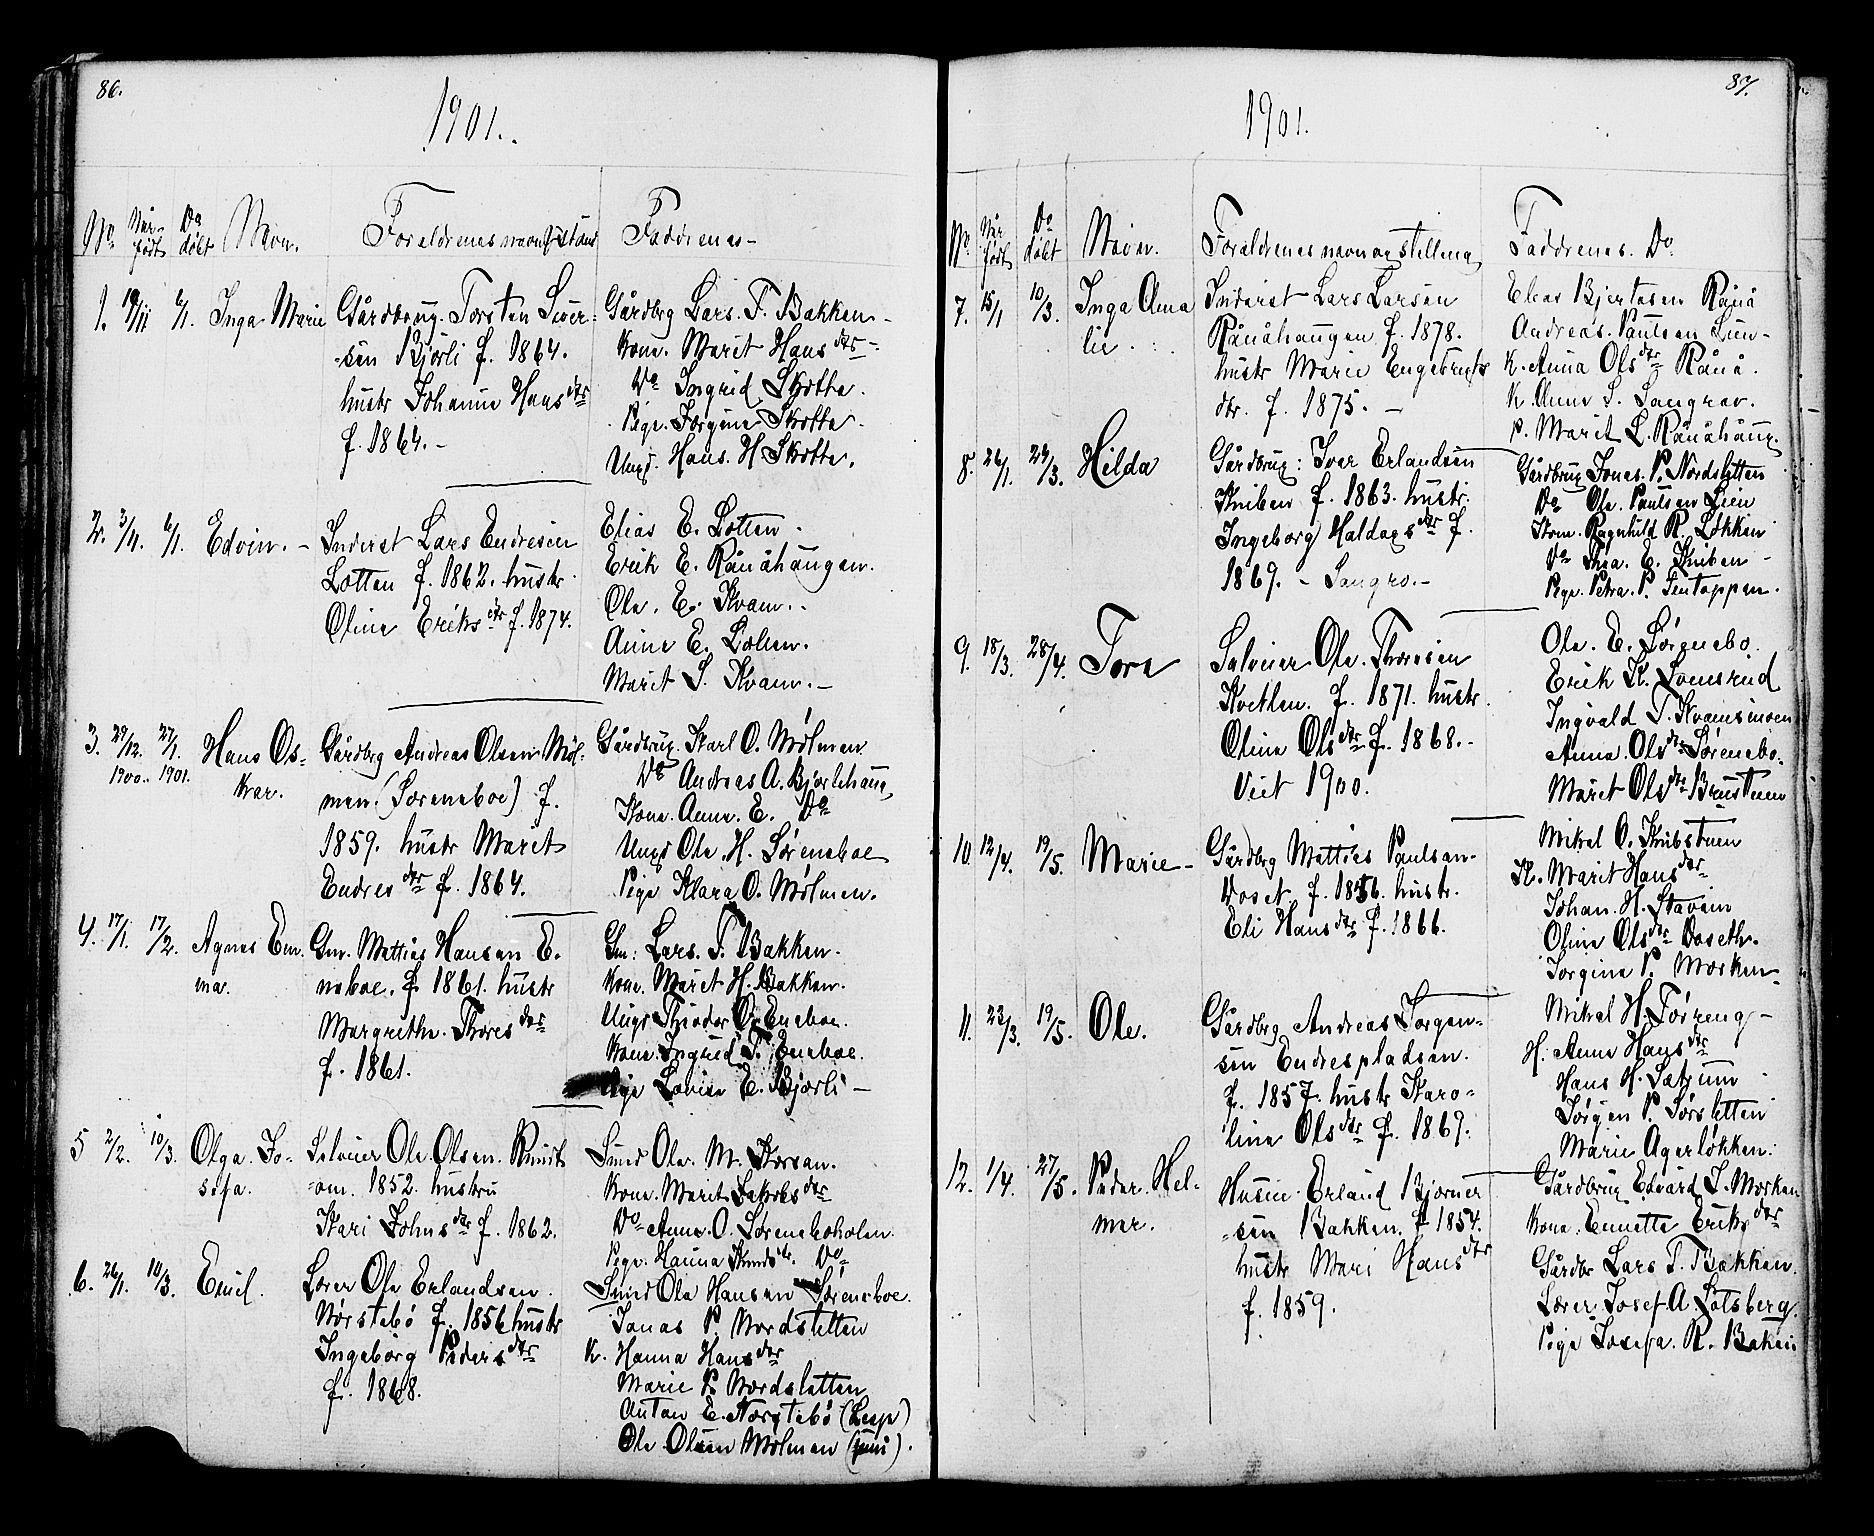 86.
1901.
No. Når født Do døbt Navn. Forældrenes navn og stand Faddrenes-
1. 19/11 6/1. Inga Marie
Gårdbrug. Torsten Siver-
sen Bjorli f. 1864.
hustr Johanne Hansdtr
f. 1864.-
Gårdbrg Lars. T. Bakken-
Kone. Marit Hansdtr-
Do Ingrid Skotte.
Pige. Jørgine Skotte.
Ungk. Hans. H Skotte.
2. 3/4. 6/1. Edvin.-
Inderst Lars Endresen
Lotten f. 1862. hustr
Oline Eriksdtr f. 1874.
Elias E. Lotten.
Erik E. Rånåhaugen.
Ole. E. Kvam.
Anne E. Lotten.
Marit S. Kvam.-
3. 29/12. 1900.. 27/1. 1901. Hans Os-
kar.
Gårdbrg Andreas Olsen Møl-
men. (Sørensboe) f.
1859. hustr Marit
Endresdtr f. 1864.
Gårdbrug. Karl O. Mølmen.
Do Andreas A. Bjorlihaug
Kone. Anne. E. Do
Ungk Ole. H. Sørensboe
Pige Klara O. Mølmen.
4. 17/1. 17/2. Agnes Em
ma.
Gm. Mattias Hansen E.
neboe. f. 1861. hustr
Margrethe. Thoresdtr
f. 1861.
Gm: Lars. T. Bakken.
Kone. Marit H. Bakken.
Ungk Theodor O. Eneboe.
Kone. Ingrid T. Eneboe.
Pige Lovise E. Bjorli-
5 2/2. 10/3. Olga. Jo-
sefa.
Selveier Ole. Olsen. Rundt
om. 1852. hustru
Kari Johnsdtr f. 1862.
Smed Ole. M. Korsan.
Kone. Marit Jakobsdtr
Do Anne. O. Sørensboholen.
Pige. Hanna Knudsdtr. Do
6. 26/1. 10/3. Emil.
Lærer Ole Erlandsen.
Norstebø f. 1856 hustr
Ingeborg Pedersdtr
f. 1868.
Smed Ole Hansen Sørensboe.
Jonas P. Nordsletten
K. Hanna Hansdtr
Marie P. Nordsletten
Anton E. Norstebø (Lesje)
Ole Olsen Mølmen (juni).
87.
1901.
No. Når født Do døbt Navn. Forældrenes navn og stilling Faddrenes. Do
7. 15/1 10/3. Inga Ama
lie.
Inderst Lars Larsen
Rånåhaugen f. 1878.
hustr Marie Engebrigts
dtr. f. 1875.-
Elias Bjertesen Rånå
Andreas. Paulsen Lun-
K. Anna Olsdtr Rånå.
K Anne S. Sangrav.
P. Marit L. Rånåhaug.
8. 26/1. 24/3. Hilda
Gårdbrug: Iver Erlandsen
Kniben f. 1863. hustr.
Ingeborg Haldogsdtr f.
1869.- Sangro.-
Gårdbrug Jonas. P. Nordsletten
Do Ole. Paulsen Lien
Kone. Ragnhild R. Løkken
Do Thea. E. Kniben-
Pige. Petra. P. Tentoppen.
9. 18/3. 28/4. Tora
Selveier Ole. Thoresen
Kvetlen. f. 1871. hustr
Oline Olsdtr f. 1868.-
Viet 1900.
Ole. E. Sørgnebo.
Erik K. Lomsrud
Ingvald T. Kvamsmoen
Anna Olsdtr Sørenebo.
Marit Olsdtr Brustuen
10. 12/4. 19/5. Marie-
Gårdbrg Mattias Paulsen-
Voset f. 1856. hustr.
Eli Hansdtr f. 1866.
Mikal O. Knibstuen
K. Marit Hansdtr
Johan. H. Stavem
Oline Olsdtr Voseth.
Jorgine P. Morken-
11. 23/3. 19/5. Ole.
Gårdbrg Andreas Jorgen-
sen Endrespladsen.
f. 1857. hustr Karo-
line Olsdtr f. 1867.
Mikal H. Torreng-
K. Anne Hansdtr
Hans H. Sætrum
Jorgen P. Sorsletten
Marie Agerløkken.
12. 1/4. 27/5. Peder. Hel-
mer.
Husm. Erland Bjorner
sen Bakken. f 1854.
hustr Mari Hansdtr
f. 1859.
Gårdbrug Edvard I. Morken
Kone. Ennette Eriksdtr
Gårdbr Lars T. Bakken.
Lærer. Josef A. Løtsberg.
Pige Josefa. R. Bakken